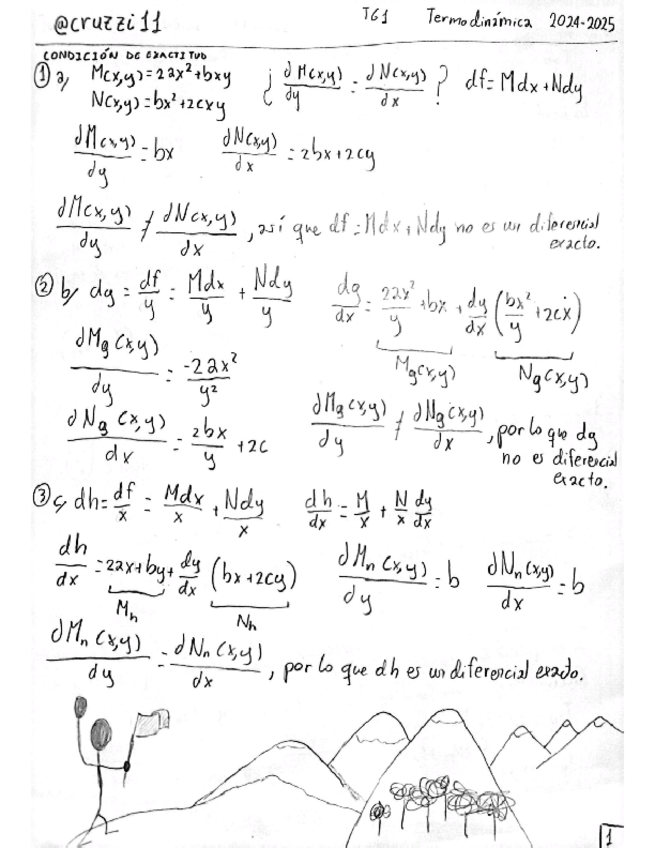 @cruzzi11 TG1 Termodinámica 2024-2025
CONDICIÓN DE EXACTITUD
① a) M(x,y)=2ax²+bxy ¿ dM(x,y)/dy = dN(x,y)/dx ? df=Mdx+Ndy
N(x,y)=bx²+2cxy
dM(x,y)/dy = bx dN(x,y)/dx = 2bx+2cy
dM(x,y)/dy ≠ dN(x,y)/dx, así que df=Mdx+Ndy no es un diferencial
exacto.
② b) dg = df/y = Mdx/y + Ndy/y dg/dx = 2ax²/y + bx + dy/dx (bx²/y + 2cx)
Mg(x,y) Ng(x,y)
dMg(x,y)/dy = -2ax²/y²
dNg(x,y)/dx = 2bx/y + 2c dMg(x,y)/dy ≠ dNg(x,y)/dx, por lo que dg
no es diferencial
exacto.
③ c) dh = df/x = Mdx/x + Ndy/x dh/dx = M/x + N/x dy/dx
dh/dx = 2ax+by+ dy/dx (bx+2cy) dMh(x,y)/dy = b dNh(x,y)/dx = b
Mh Nh
dMh(x,y)/dy = dNh(x,y)/dx, por lo que dh es un diferencial exacto.
1